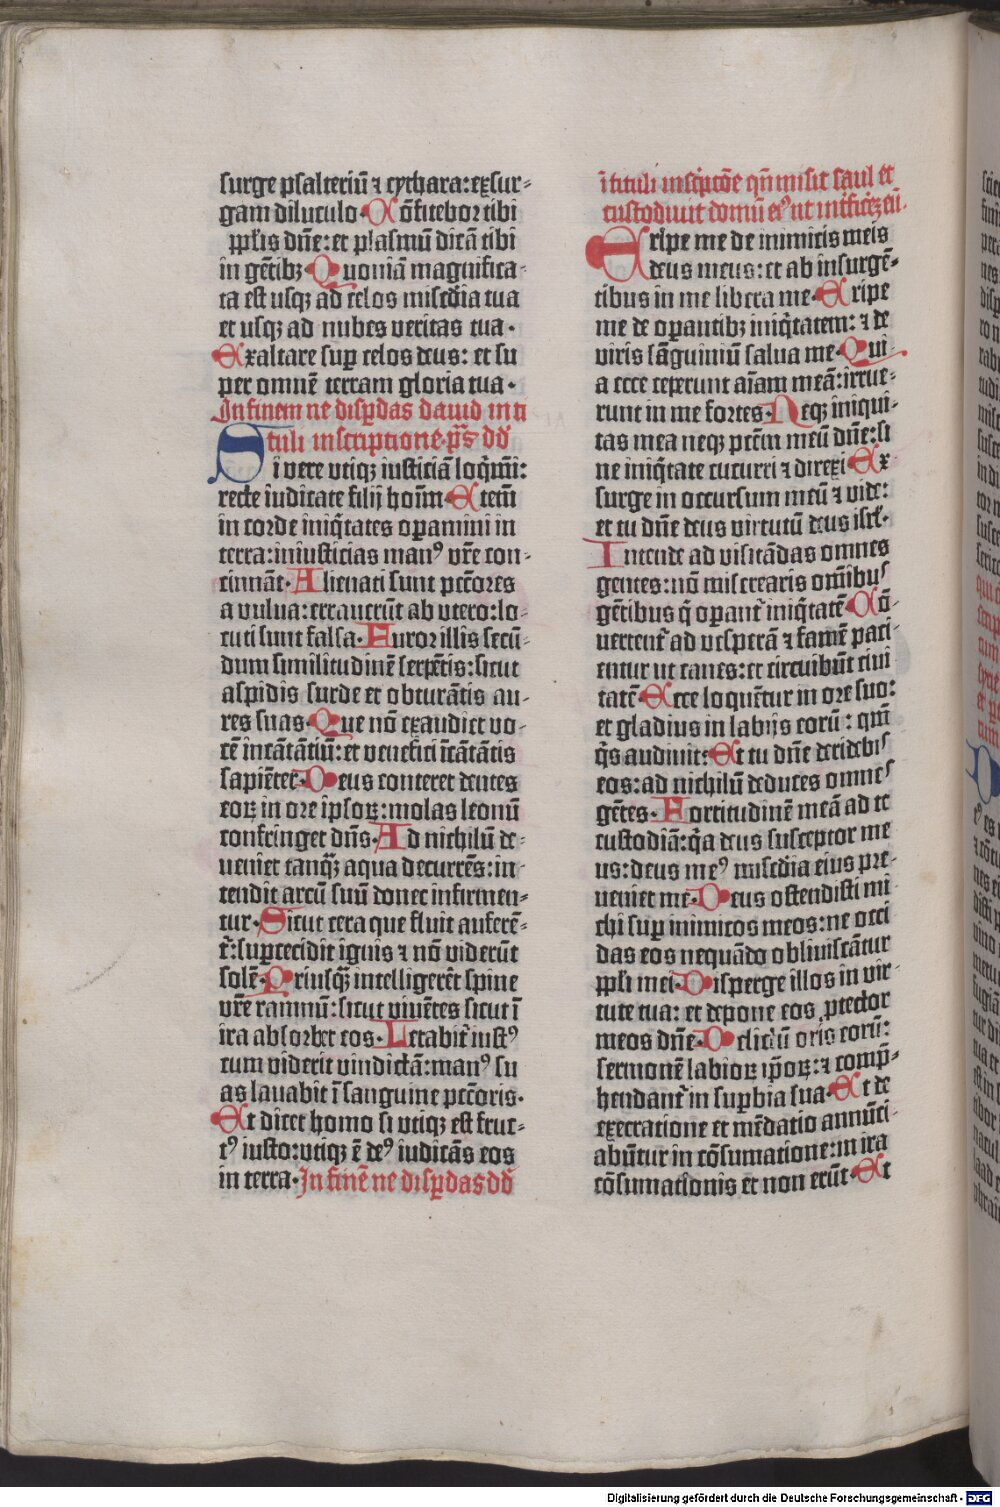 surge psalteriū ⁊ cythara: exsur⸗
gam diluculo. Cōfitebor tibi
ppl̄is dn̄e: et psalmū dicā tibi
in gētibꝫ Quoniā magnifica⸗
ta est usqꝫ ad celos mis̄c̄dia tua
et usqꝫ ad nubes veritas tua.
Exaltare suꝑ celos deus: et su
per omnē terram gloria tua.
In finem ne disꝑdas dauid in ti
tuli inscriptione. p̄s dd̄
Si vere vtiqꝫ iusticiā loq̄mī:
recte iudicate filij hoīm. Etem̄
in corde iniq̄tates oꝑamini in
terra: iniusticias manꝰ vr̄e con⸗
cinnāt. Alienati sunt pc̄cōres
a vulua: errauerūt ab vtero: lo⸗
cuti sunt falsa. Furor illis secū⸗
dum similitudinē serpētis: sicut
aspidis surde et obturātis au⸗
res suas. Que nō exaudiet vo⸗
cē incātātiū: et venefici īcātātis
sapiēter. Deus conteret dentes
eoꝝ in ore ipsoꝝ: molas leonū
confringet dn̄s. Ad nichilū de⸗
ueniet tanqꝫ aqua decurrēs: in⸗
tendit arcū suū donec infirmen⸗
tur. Sicut cera que fluit auferē⸗
t̄: suꝑcecidit ignis ⁊ nō viderūt
solē. Priusqꝫ intelligerēt spine
vr̄e ramnū: sicut viuētes sicut ī
ira absorbet eos. Letabit̄ iustꝰ
cum viderit vindictā: manꝰ su
as lauabit ī sanguine pc̄cōris.
Et dicet homo si vtiqꝫ est fruc⸗
tꝰ iusto: vtiqꝫ ē deꝰ iudicās eos
in terra. In finē ne disꝑdas dd̄
ī tituli insc̄pc̄ōe qn̄ misit saul et
custodiuit domū eꝰ ut int̄fic̄eꝫ eū.
Eripe me de inimicis meis
deus meus: et ab insurgē⸗
tibus in me libera me. Eripe
me de oꝑantibꝫ iniq̄tatem: ⁊ de
viris sāguiniū salua me. Qui
a ecce ceperunt aīam meā: irrue⸗
runt in me fortes. Neqꝫ iniqui⸗
tas mea neqꝫ pctm̄ meū dn̄e: si
ne iniq̄tate cucurri ⁊ direxi. Ex
surge in occursum meū ⁊ vide:
et tu dn̄e deus virtutū deus isrl̄.
Intende ad visitādas omnes
gentes: nō miserearis omībus
gētibus q̄ oꝑant̄ iniq̄tatē. Cō⸗
uertent̄ ad vesperā ⁊ famē paci⸗
entur ut canes: et circuibūt ciui
tatē. Ecce loquētur in ore suo:
et gladius in labijs eorū: qm̄
q̄s audiuit: Et tu dn̄e deridebis
eos: ad nichilū deduces omnes
gētes. Fortitudinē meā ad te
custodiā: q̄a deus susceptor me
us: deus meꝰ mis̄c̄dia eius pre⸗
ueniet me. Deus ostendisti mi
chi suꝑ inimicos meos: ne occi
das eos nequādo obliuiscātur
ppl̄i mei. Disperge illos in vir⸗
tute tua: et depone eos ꝓtector
meos dn̄e. Delictū oris eorū:
sermonē labioꝝ ip̄oꝝ: ⁊ comp̄⸗
hendant̄ in suꝑbia sua. Et de
execratione et mēdatio annūci⸗
abūtur in cōsumatione: in ira
cōsumationis et non erūt. Et
Digitalisierung gefördert durch die Deutsche Forschungsgemeinschaft - DFG